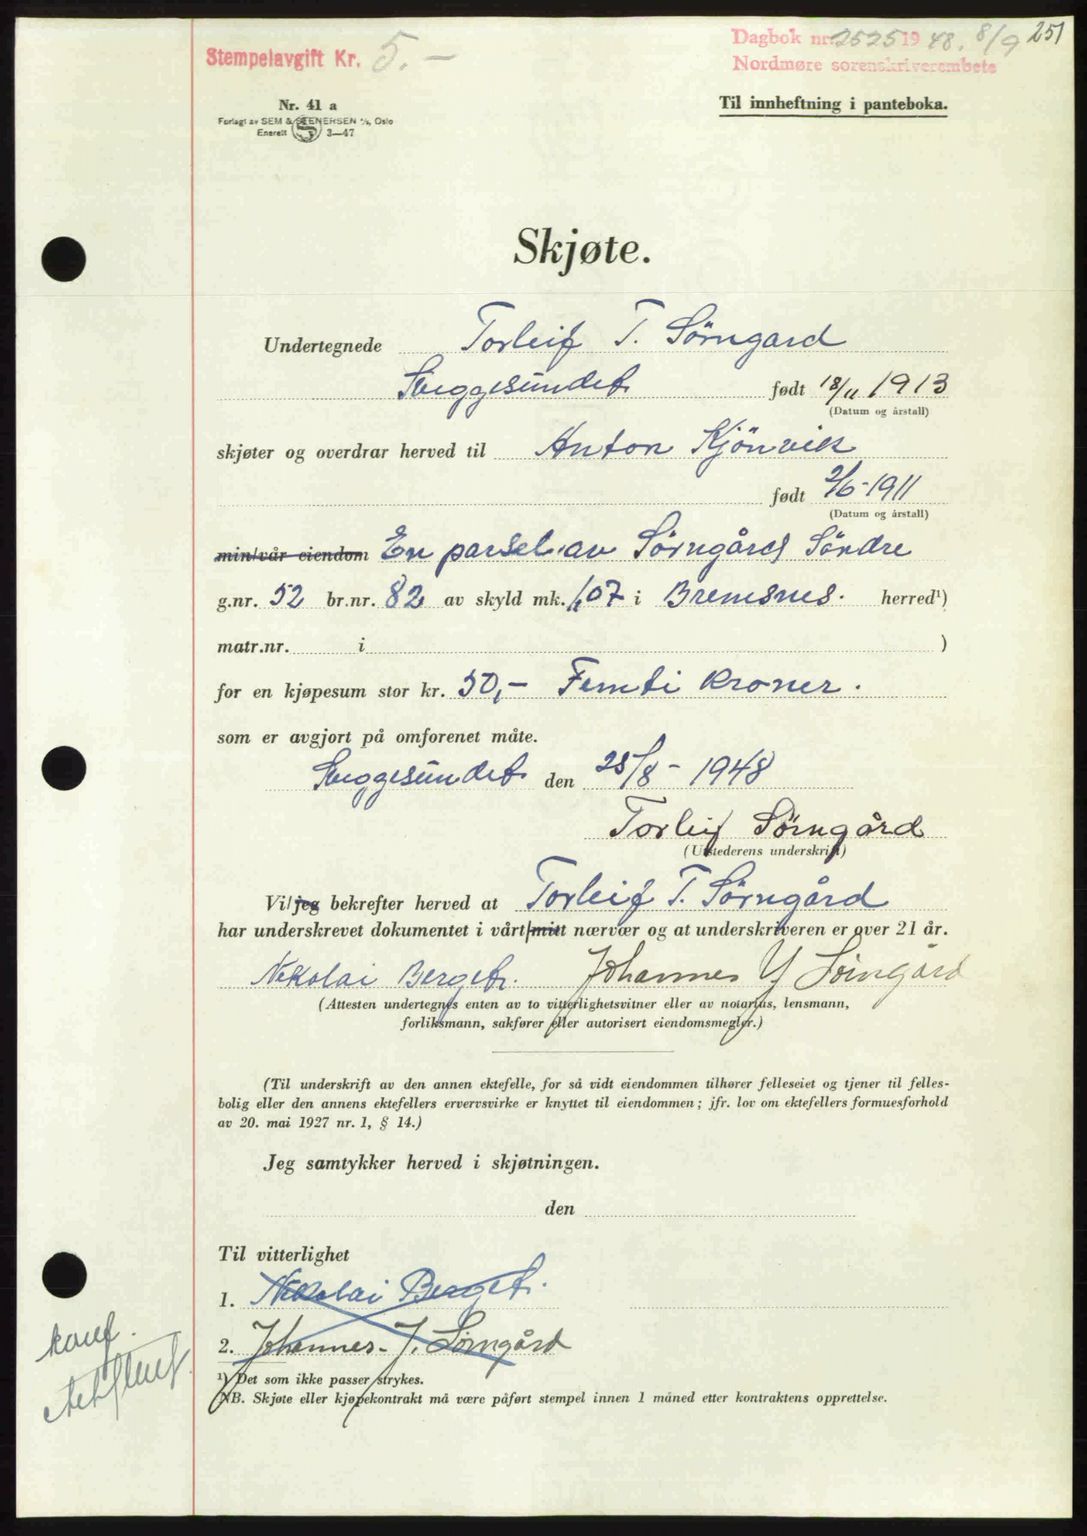 Stempelavgift Kr. 5.-
Dagbok nr. 2525 1948. 8/9 251
Nordmøre sorenskriverembete
Til innheftning i panteboka.
Nr. 41 a
Forlagt av SEM & STENERSEN A/S, Oslo
Enerett S 3—47
Skjøte.
Undertegnede Torleif T. Sörngard
Seggesundet født 18/11 1913
(Datum og årstall)
skjøter og overdrar herved til Anton Kjönvik
født 2/6-1911
(Datum og årstall)
min/vår eiendom En parsel av Sörngård Söndre
g.nr. 52 br.nr. 82 av skyld mk. 0,07 i Bremsnes. herred¹)
matr.nr. i )
for en kjøpesum stor kr. 50,- Femti kroner.
som er avgjort på omforenet måte.
Seggesundet den 25/8-1948
Torleif Sörngård
(Utstederens underskrift)
Vi/jeg bekrefter herved at Torleif T. Sörngård
har underskrevet dokumentet i vårt/mitt nærvær og at underskriveren er over 21 år.
Nekolai Berget. Johannes J Sörngård
(Attesten undertegnes enten av to vitterlighetsvitner eller av notarius, lensmann,
forliksmann, sakfører eller autorisert eiendomsmegler.)
(Til underskrift av den annen ektefelle, for så vidt eiendommen tilhører felleseiet og tjener til felles-
bolig eller den annens ektefellers ervervsvirke er knyttet til eiendommen; jfr. lov om ektefellers formuesforhold
av 20. mai 1927 nr. 1, § 14.)
Jeg samtykker herved i skjøtningen.
den
Til vitterlighet
1. Nekolai Berget.
2. Johannes J. Sörngård
¹) Det som ikke passer strykes.
NB. Skjøte eller kjøpekontrakt må være påført stempel innen 1 måned etter kontraktens opprettelse.